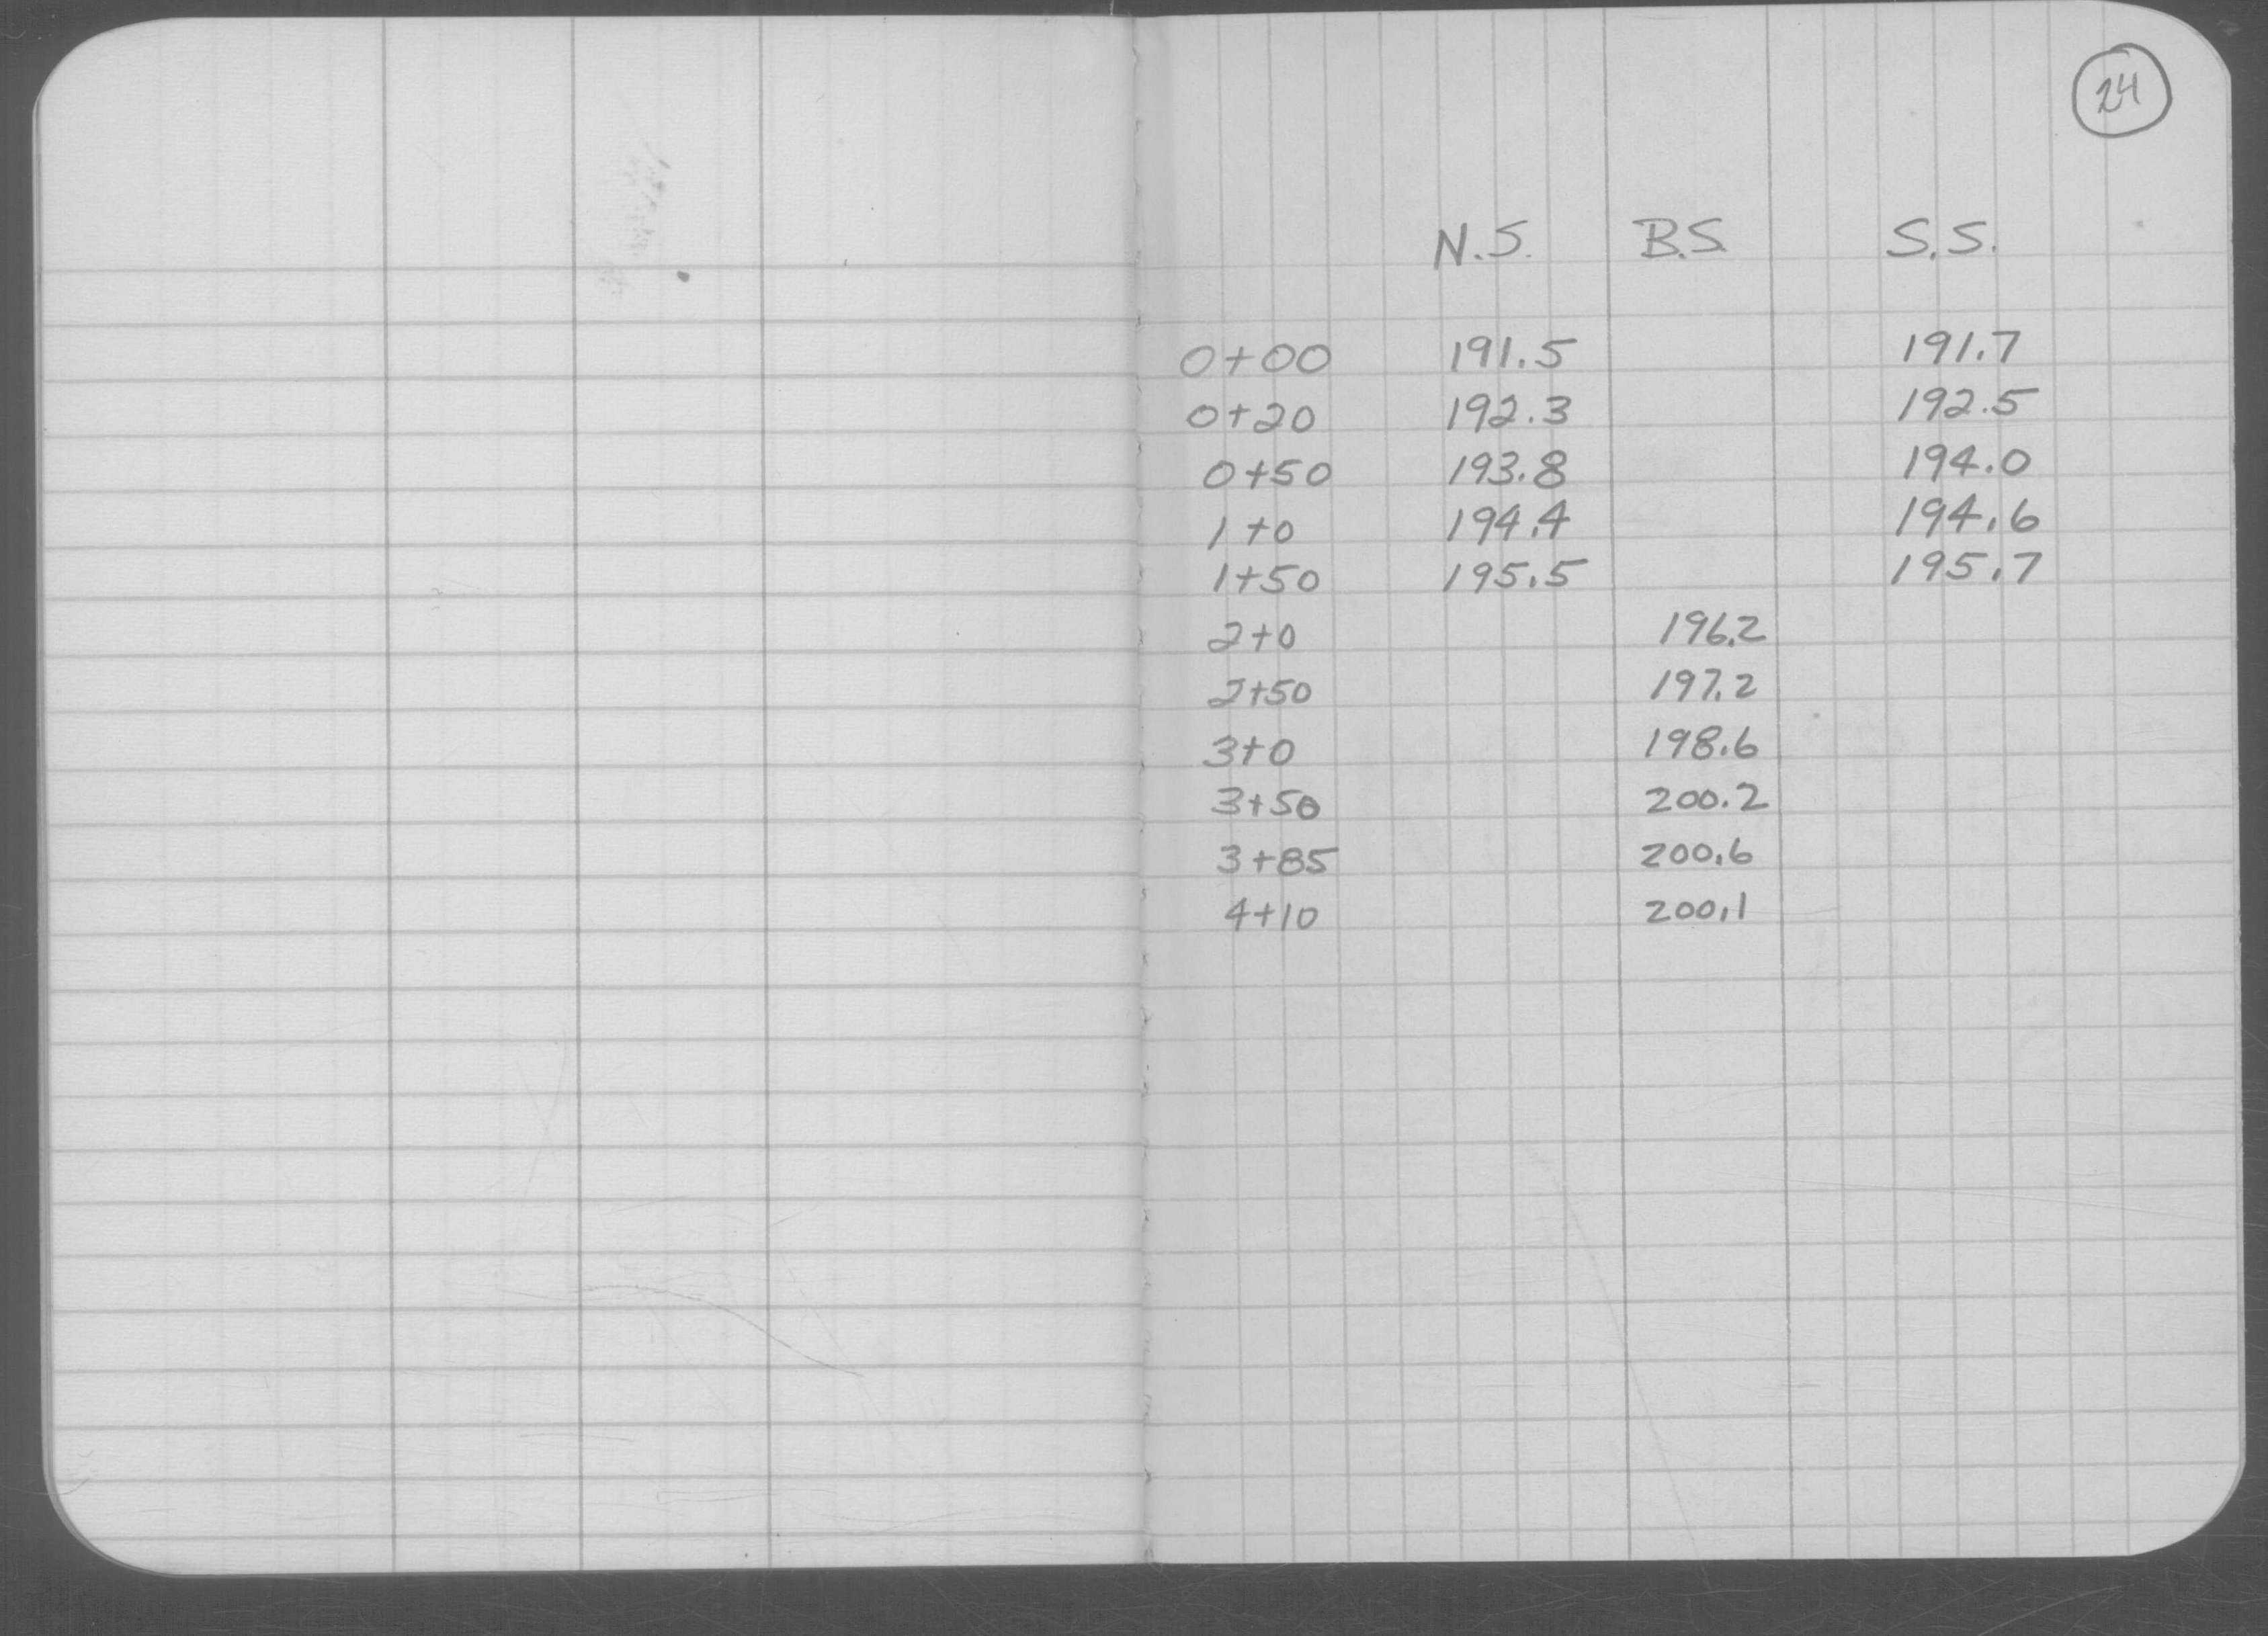 24
N.S. B.S. S.S.
0+00 191.5 191.7
0+20 192.3 192.5
0+50 193.8 194.0
1+0 194.4 194.6
1+50 195.5 195.7
2+0 196.2
2+50 197.2
3+0 198.6
3+50 200.2
3+85 200.6
4+10 200.1